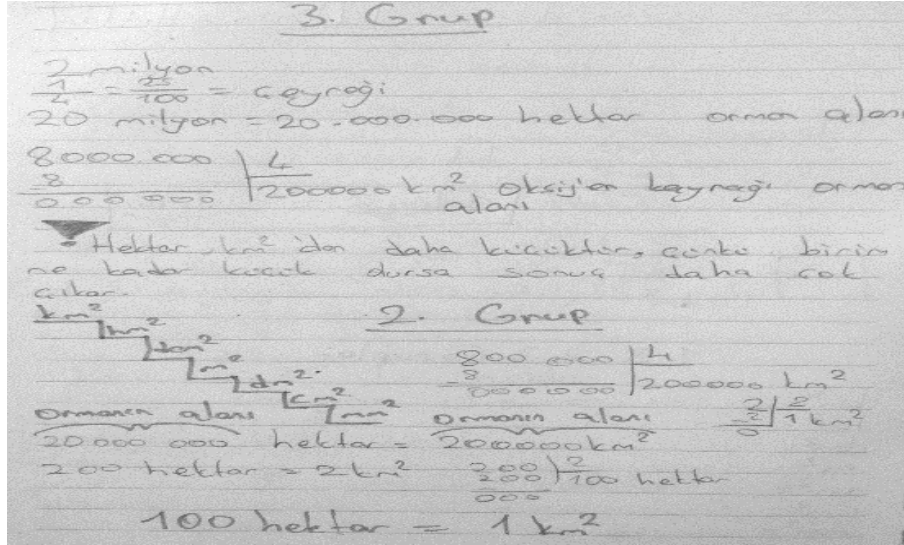 3. Grup
2 milyon
1/4 = 25/100 = çeyreği
20 milyon = 20.000.000 hektar orman alanı
8000.000 | 4
8
000 000 | 200000 km² oksijen kaynağı orman
alanı
Hektar km² 'den daha küçüktür, çünkü birim
ne kadar küçük olursa sonuç daha çok
çıkar.
km²
hm²
dam²
m²
dm²
cm²
mm²
2. Grup
800 000 | 4
-8
000000 | 200000 km²
Ormanın alanı Ormanın alanı
2 | 2
-2 | 1 km²
0
20 000 000 hektar = 200000 km²
200 hektar = 2 km²
200 | 2
200 | 100 hektar
000
100 hektar = 1 km²